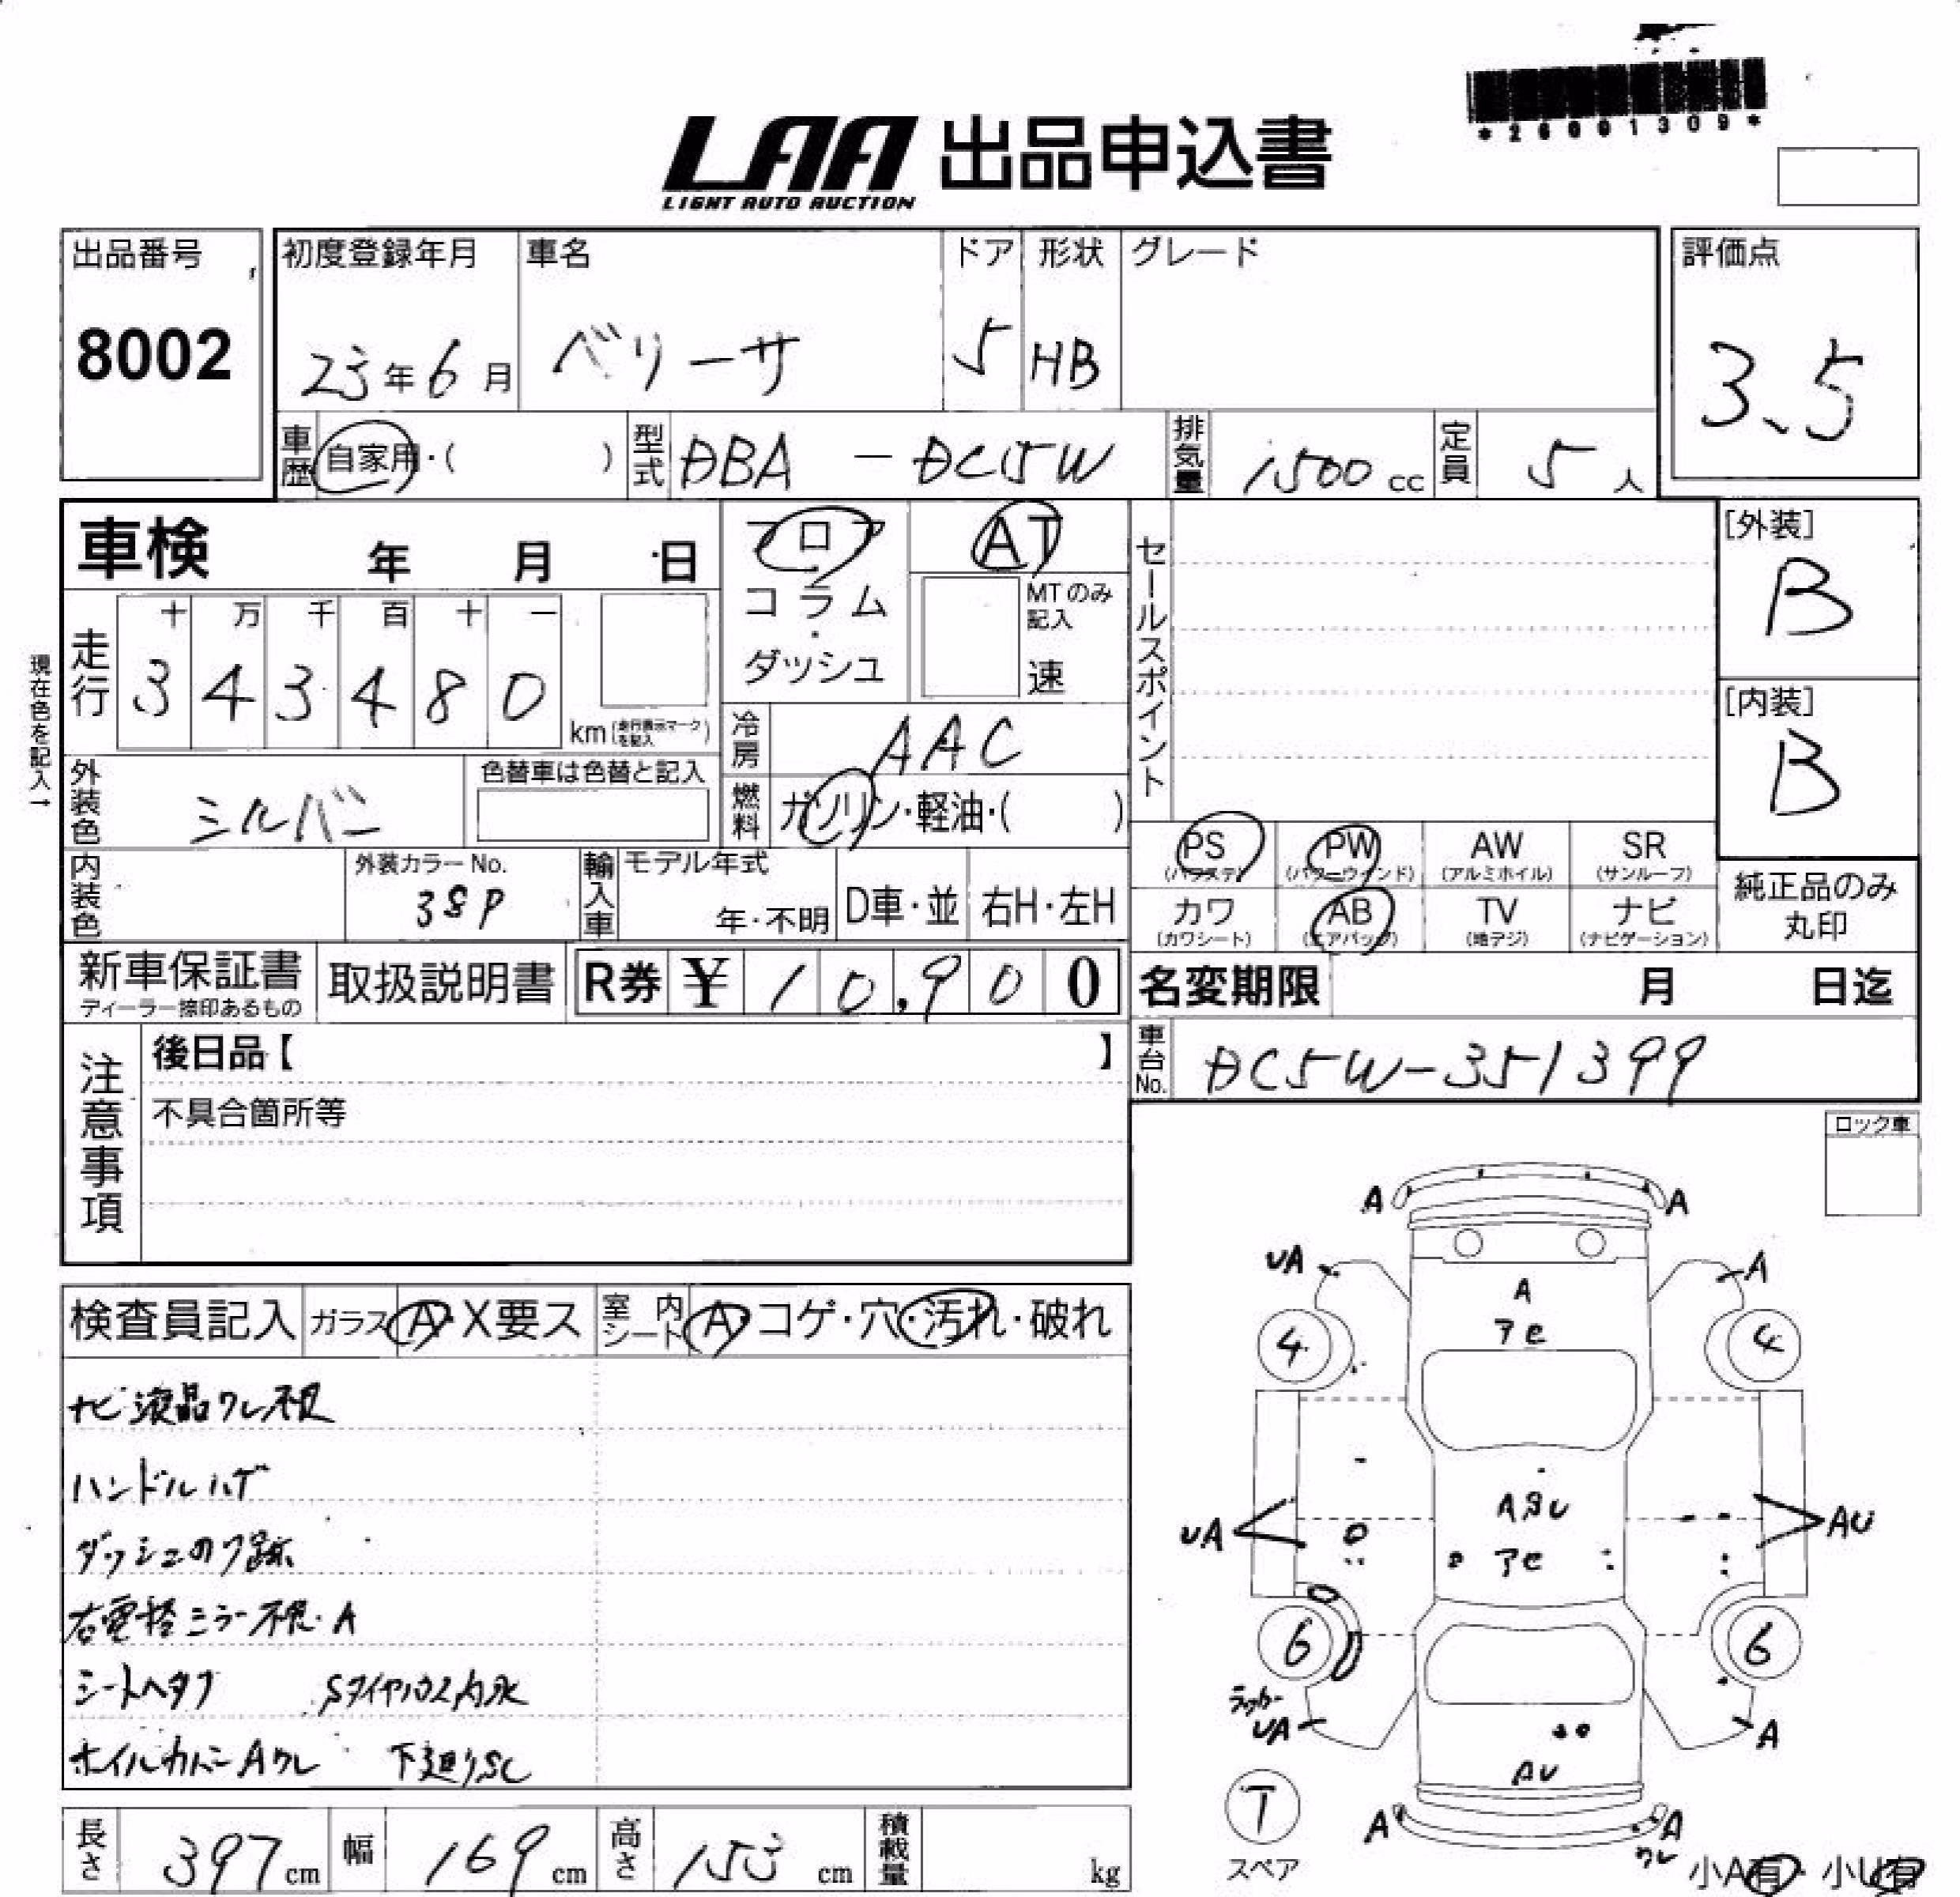 *26001309*
LAA 出品申込書
LIGHT AUTO AUCTION
出品番号 初度登録年月 車名 ドア 形状 グレード 評価点
8002 23年6月 ベリーサ 5 HB 3.5
車歴 自家用・( ) 型式 DBA - DC5W 排気量 1500 cc 定員 5 人
車検 年 月 日 フロア AT [外装]
コラム・ダッシュ MTのみ記入 速 セールスポイント B
現在色を記入→
走行 十 万 千 百 十 一
3 4 3 4 8 0 km (走行表示マークを記入)
冷房 AAC [内装]
B
外装色 シルバー 色替車は色替と記入 燃料 ガソリン・軽油・( )
PS (パワステ) PW (パワーウインド) AW (アルミホイル) SR (サンルーフ)
カワ (カワシート) AB (エアバッグ) TV (地デジ) ナビ (ナビゲーション)
純正品のみ丸印
内装色 外装カラーNo. 38P 輸入車 モデル年式 年・不明 D車・並 右H・左H
新車保証書 ディーラー捺印あるもの 取扱説明書 R券 ¥ 10,900 名変期限 月 日迄
車台No. DC5W-351399
注意事項 後日品【 】
不具合箇所等
ロック車
検査員記入 ガラス A・X要ス 室内シート A・コゲ・穴・汚れ・破れ
ナビ液晶ワレ不良
ハンドルハゲ
ダッシュのリ跡
右電格ミラー不良・A
シートヘタリ Sタイヤハウス内水
ホイルカバーAワレ 下廻りSC
A A
UA A
A
アセ
4 4
ASU
UA AU
アセ
6 6
ラッカー
UA A
AU
T
スペア
A A
ワレ
小A有・小U有
長さ 397 cm 幅 169 cm 高さ 153 cm 積載量 kg